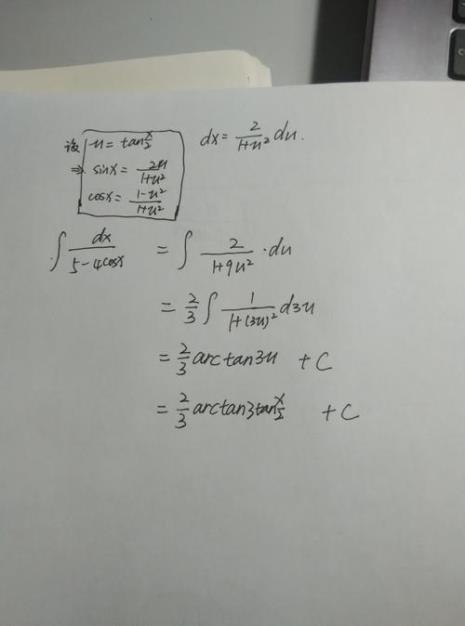 设 u = tan x/2 dx = 2/(1+u²) du.
⇒ sinx = 2u/(1+u²)
cosx = (1-u²)/(1+u²)
∫ dx/(5-4cosx) = ∫ 2/(1+9u²) · du
= 2/3 ∫ 1/(1+(3u)²) d3u
= 2/3 arctan3u + C
= 2/3 arctan3tan x/2 + C